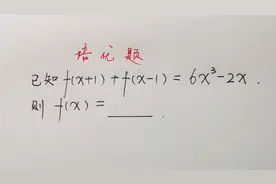 培优题
已知 f(x+1)+f(x-1)=6x³-2x.
则 f(x)=____.